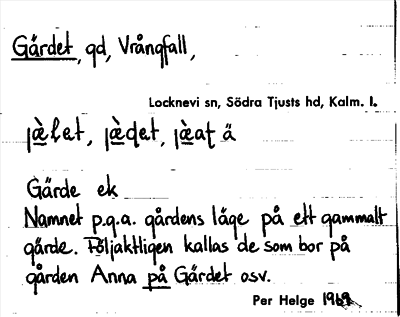 Gärdet, gd, Vrångfall,
Locknevi sn, Södra Tjusts hd, Kalm. l.
jæ̀let, jæ̀det, jæ̀at ä
Gärde ek
Namnet p.g.a. gårdens läge på ett gammalt
gärde. Följaktligen kallas de som bor på
gården Anna på Gärdet osv.
Per Helge 1969